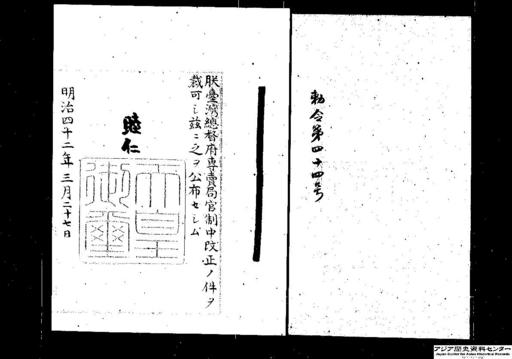 勅令第四十四号
朕臺灣總督府専賣局官制中改正ノ件ヲ
裁可シ茲ニ之ヲ公布セシム
睦仁
天皇
御璽
明治四十二年三月二十七日
アジア歴史資料センター
Japan Center for Asian Historical Records